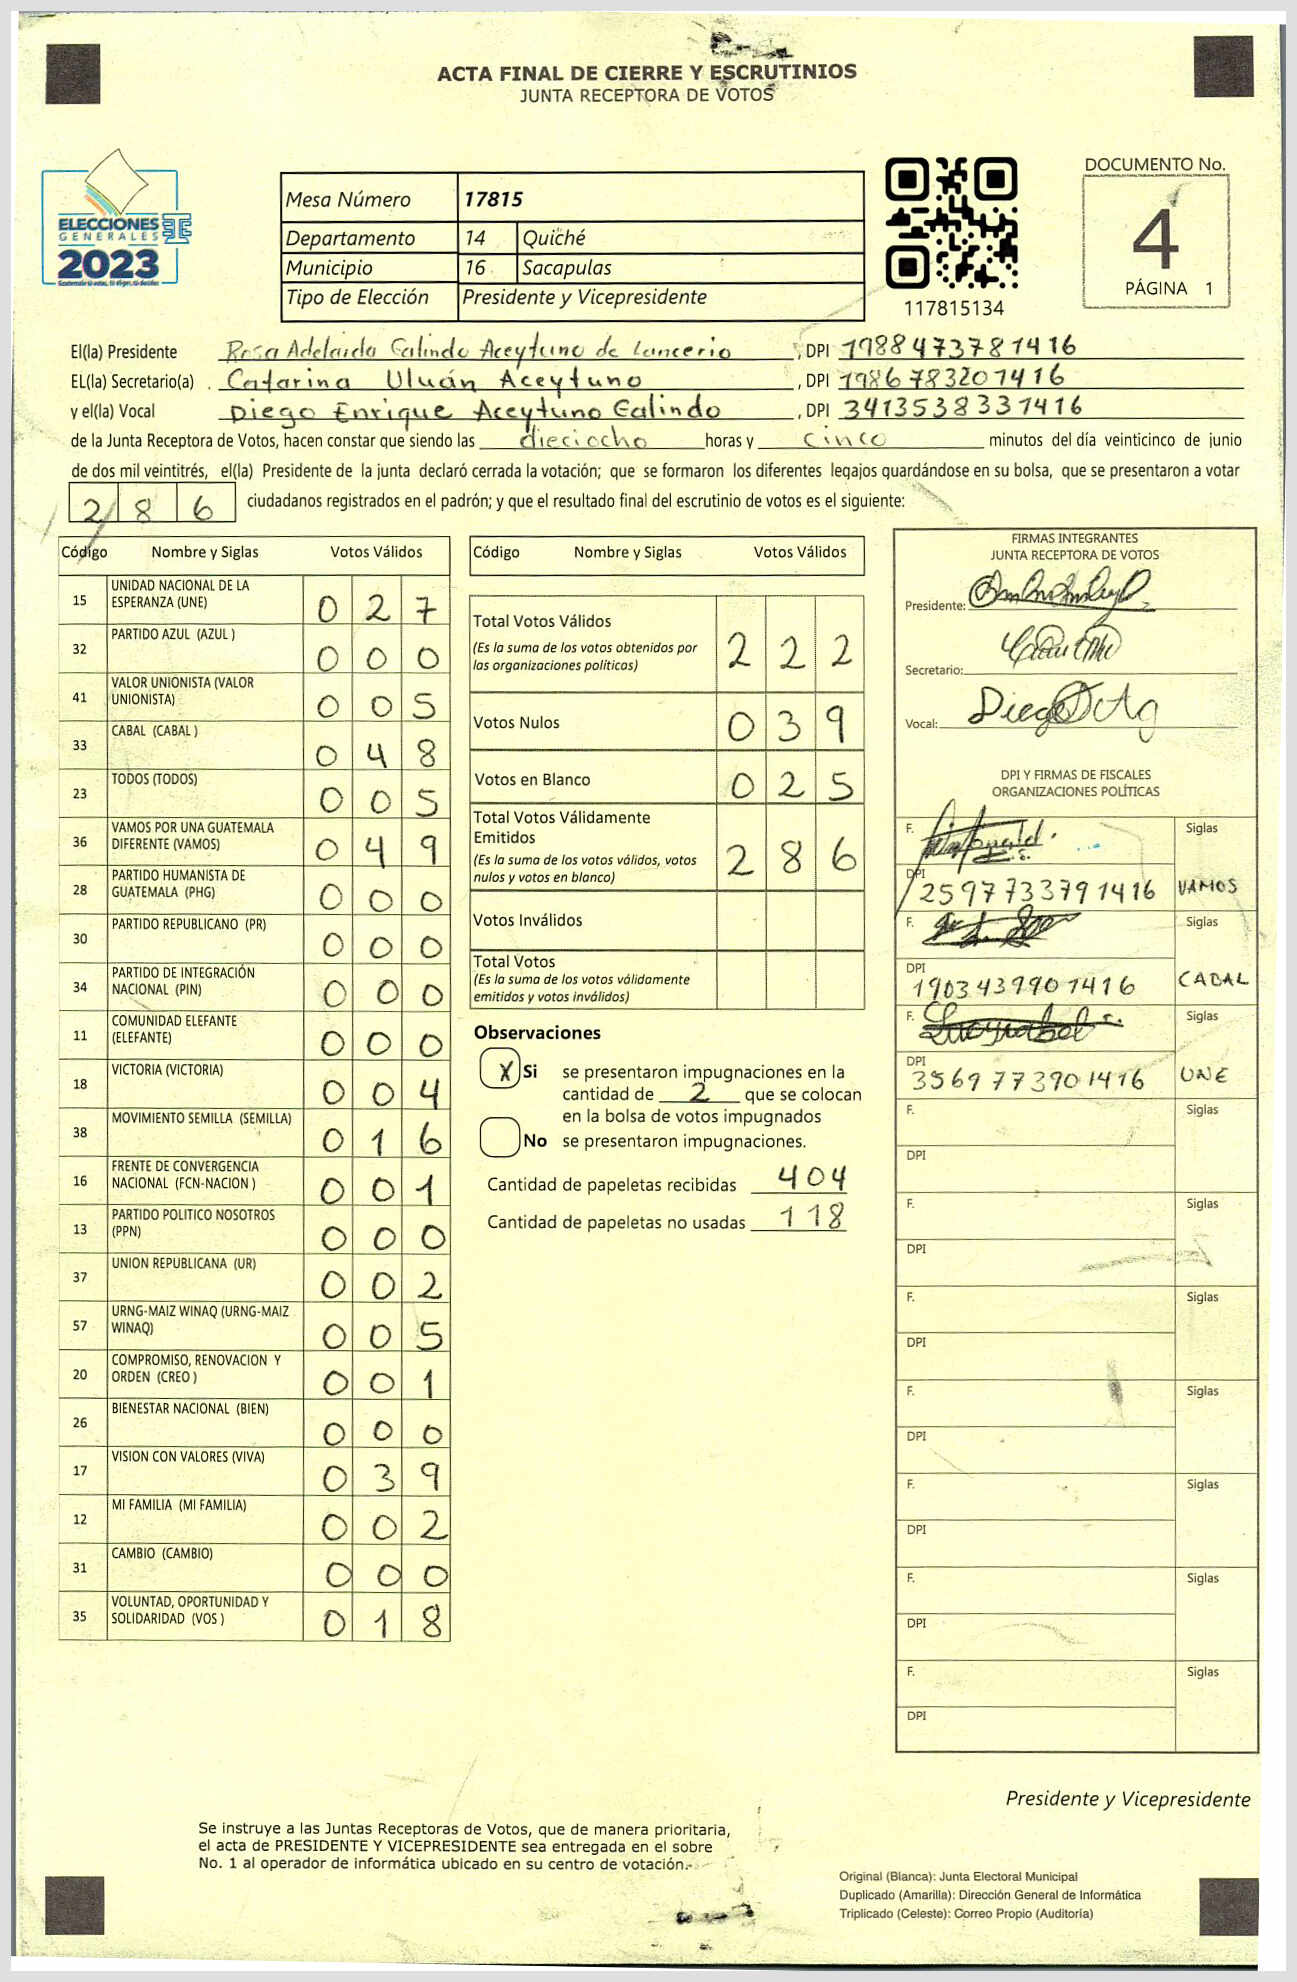 ACTA FINAL DE CIERRE Y ESCRUTINIOS
JUNTA RECEPTORA DE VOTOS
ELECCIONES
GENERALES
2023
Mesa Número 17815
Departamento 14 Quiché
Municipio 16 Sacapulas
Tipo de Elección Presidente y Vicepresidente
117815134
DOCUMENTO No.
4
PÁGINA 1
El(la) Presidente Rosa Adelaida Galindo Aceytuno de Lancerio, DPI 1988473781416
EL(la) Secretario(a) . Catarina Uluán Aceytuno, DPI 1986783201416
y el(la) Vocal Diego Enrique Aceytuno Galindo, DPI 3413538331416
de la Junta Receptora de Votos, hacen constar que siendo las dieciocho horas y cinco minutos del día veinticinco de junio
de dos mil veintitrés, el(la) Presidente de la junta declaró cerrada la votación; que se formaron los diferentes legajos guardándose en su bolsa, que se presentaron a votar
286 ciudadanos registrados en el padrón; y que el resultado final del escrutinio de votos es el siguiente:
Código Nombre y Siglas Votos Válidos
15 UNIDAD NACIONAL DE LA ESPERANZA (UNE) 027
32 PARTIDO AZUL (AZUL ) 000
41 VALOR UNIONISTA (VALOR UNIONISTA) 005
33 CABAL (CABAL ) 048
23 TODOS (TODOS) 005
36 VAMOS POR UNA GUATEMALA DIFERENTE (VAMOS) 049
28 PARTIDO HUMANISTA DE GUATEMALA (PHG) 000
30 PARTIDO REPUBLICANO (PR) 000
34 PARTIDO DE INTEGRACIÓN NACIONAL (PIN) 000
11 COMUNIDAD ELEFANTE (ELEFANTE) 000
18 VICTORIA (VICTORIA) 004
38 MOVIMIENTO SEMILLA (SEMILLA) 016
16 FRENTE DE CONVERGENCIA NACIONAL (FCN-NACION ) 001
13 PARTIDO POLITICO NOSOTROS (PPN) 000
37 UNION REPUBLICANA (UR) 002
57 URNG-MAIZ WINAQ (URNG-MAIZ WINAQ) 005
20 COMPROMISO, RENOVACION Y ORDEN (CREO ) 001
26 BIENESTAR NACIONAL (BIEN) 000
17 VISION CON VALORES (VIVA) 039
12 MI FAMILIA (MI FAMILIA) 002
31 CAMBIO (CAMBIO) 000
35 VOLUNTAD, OPORTUNIDAD Y SOLIDARIDAD (VOS ) 018
Código Nombre y Siglas Votos Válidos
Total Votos Válidos 222
(Es la suma de los votos obtenidos por
las organizaciones políticas)
Votos Nulos 039
Votos en Blanco 025
Total Votos Válidamente
Emitidos 286
(Es la suma de los votos válidos, votos
nulos y votos en blanco)
Votos Inválidos
Total Votos
(Es la suma de los votos válidamente
emitidos y votos inválidos)
Observaciones
X Si se presentaron impugnaciones en la
cantidad de 2 que se colocan
en la bolsa de votos impugnados
No se presentaron impugnaciones.
Cantidad de papeletas recibidas 404
Cantidad de papeletas no usadas 118
FIRMAS INTEGRANTES
JUNTA RECEPTORA DE VOTOS
Presidente:
Secretario:
Vocal: Diego
DPI Y FIRMAS DE FISCALES
ORGANIZACIONES POLÍTICAS
F. Siglas
DPI 2597733791416 VAMOS
F. Siglas
DPI 1903439901416 CABAL
F. Siglas
DPI 3569773901416 UNE
F. Siglas
DPI
F. Siglas
DPI
F. Siglas
DPI
F. Siglas
DPI
F. Siglas
DPI
F. Siglas
DPI
F. Siglas
DPI
Presidente y Vicepresidente
Se instruye a las Juntas Receptoras de Votos, que de manera prioritaria,
el acta de PRESIDENTE Y VICEPRESIDENTE sea entregada en el sobre
No. 1 al operador de informática ubicado en su centro de votación.
Original (Blanca): Junta Electoral Municipal
Duplicado (Amarilla): Dirección General de Informática
Triplicado (Celeste): Correo Propio (Auditoría)